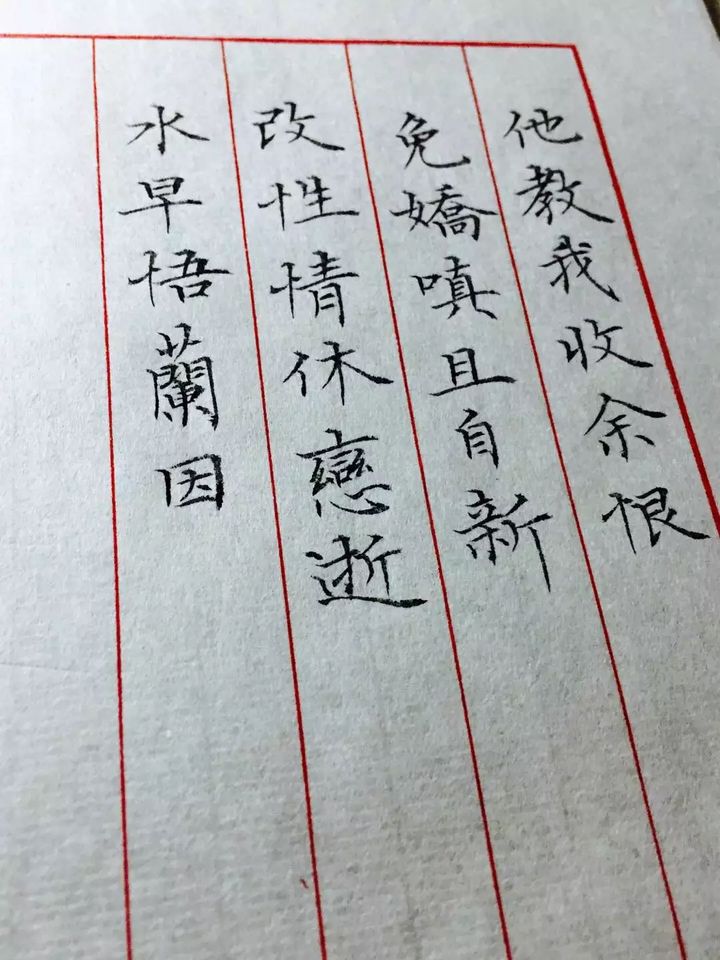 他教我收余恨
免嬌嗔且自新
改性情休戀逝
水早悟蘭因